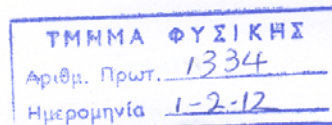 ΤΜΗΜΑ ΦΥΣΙΚΗΣ
Αριθμ. Πρωτ. 1334
Ημερομηνία 1-2-12